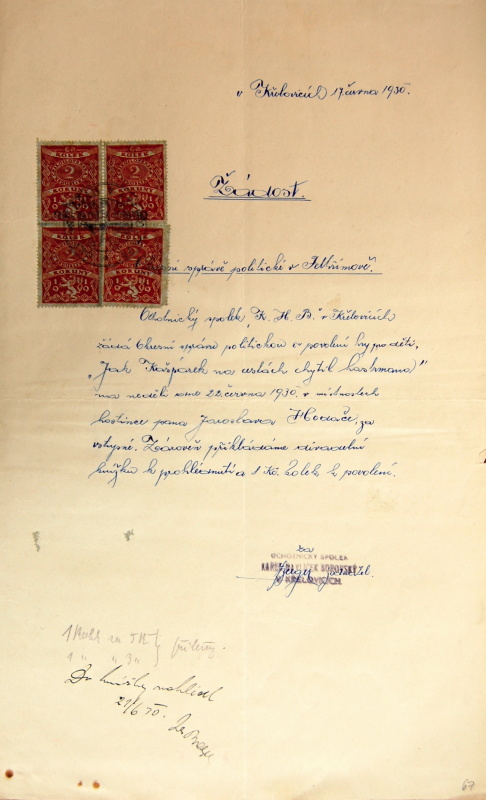 v Křelovicích 17. června 1930.
KOLEK
2
KORUNY
KOLEK
2
KORUNY
KOLEK
2
KORUNY
KOLEK
2
KORUNY
Žádost.
správě politické v Pelhřimově.
Ochotnický spolek „K. H. B." v Křelovicích
žádá Okresní správu politickou o povolení hry pro děti,
„Jak Kašpárek na cestách chytil hastrmana"
na neděli dne 22. června 1930. v místnostech
hostince pana Jaroslava Hodače, za
vstupné. Zároveň přikládáme divadelní
knížku k prohlédnutí a 5 Kč. kolek k povolení.
za
OCHOTNICKÝ SPOLEK
KAREL HAVLÍČEK BOROVSKÝ
V KŘELOVICÍCH.
přílohy.
Do knížky nahlédl
21/6 30.
67